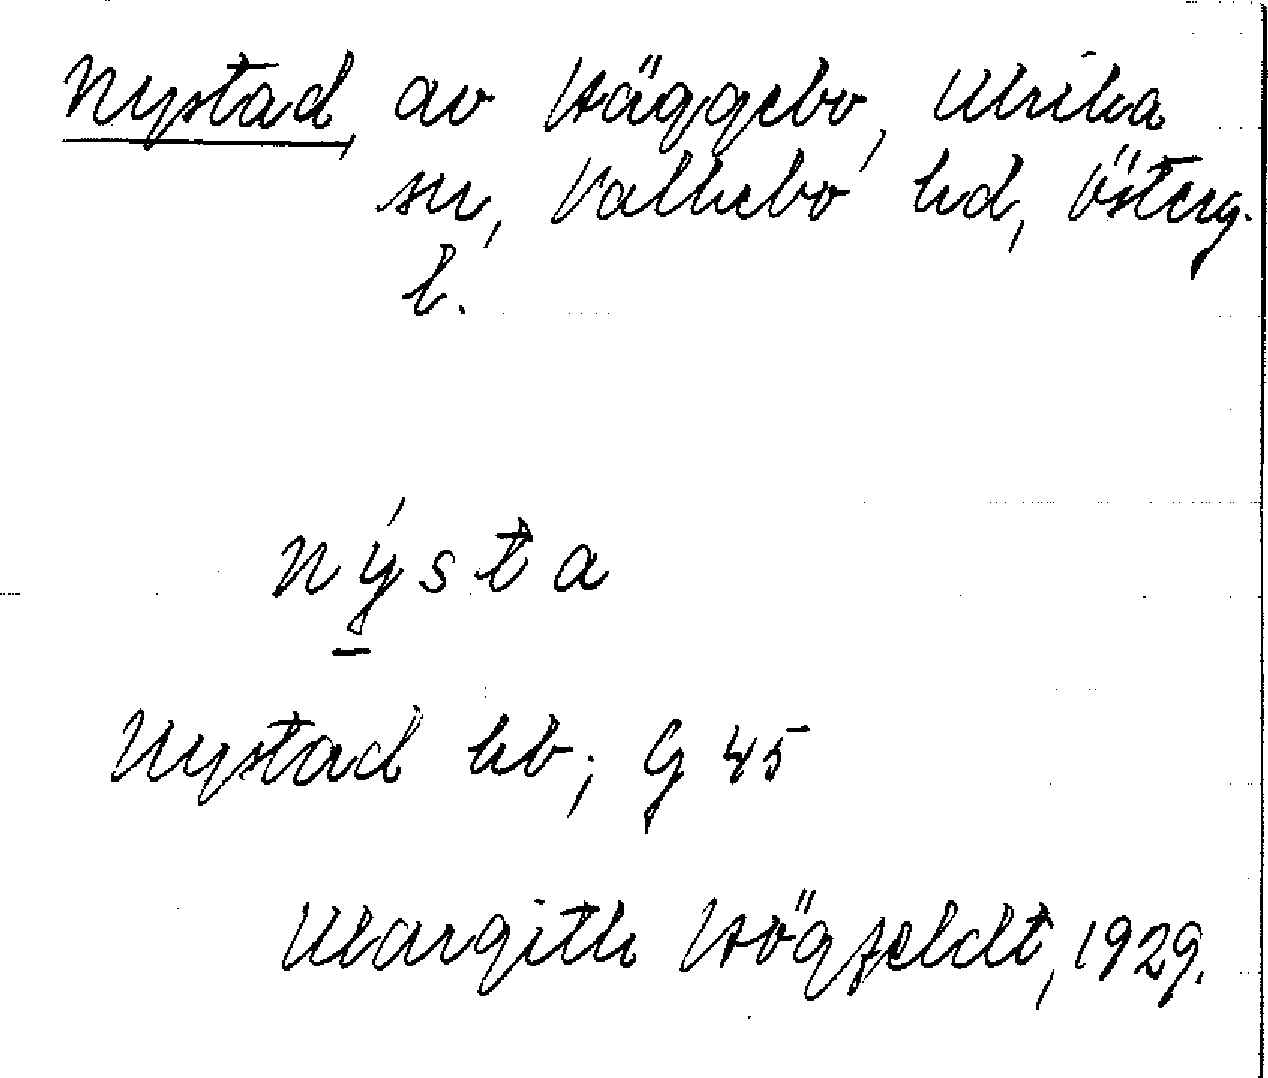 Nystad, av Häggebo, Ulrika
sn, Valkebo hd, Österg.
l.
nýsta
Nystad hb; G 45
Margith Högfeldt, 1929.